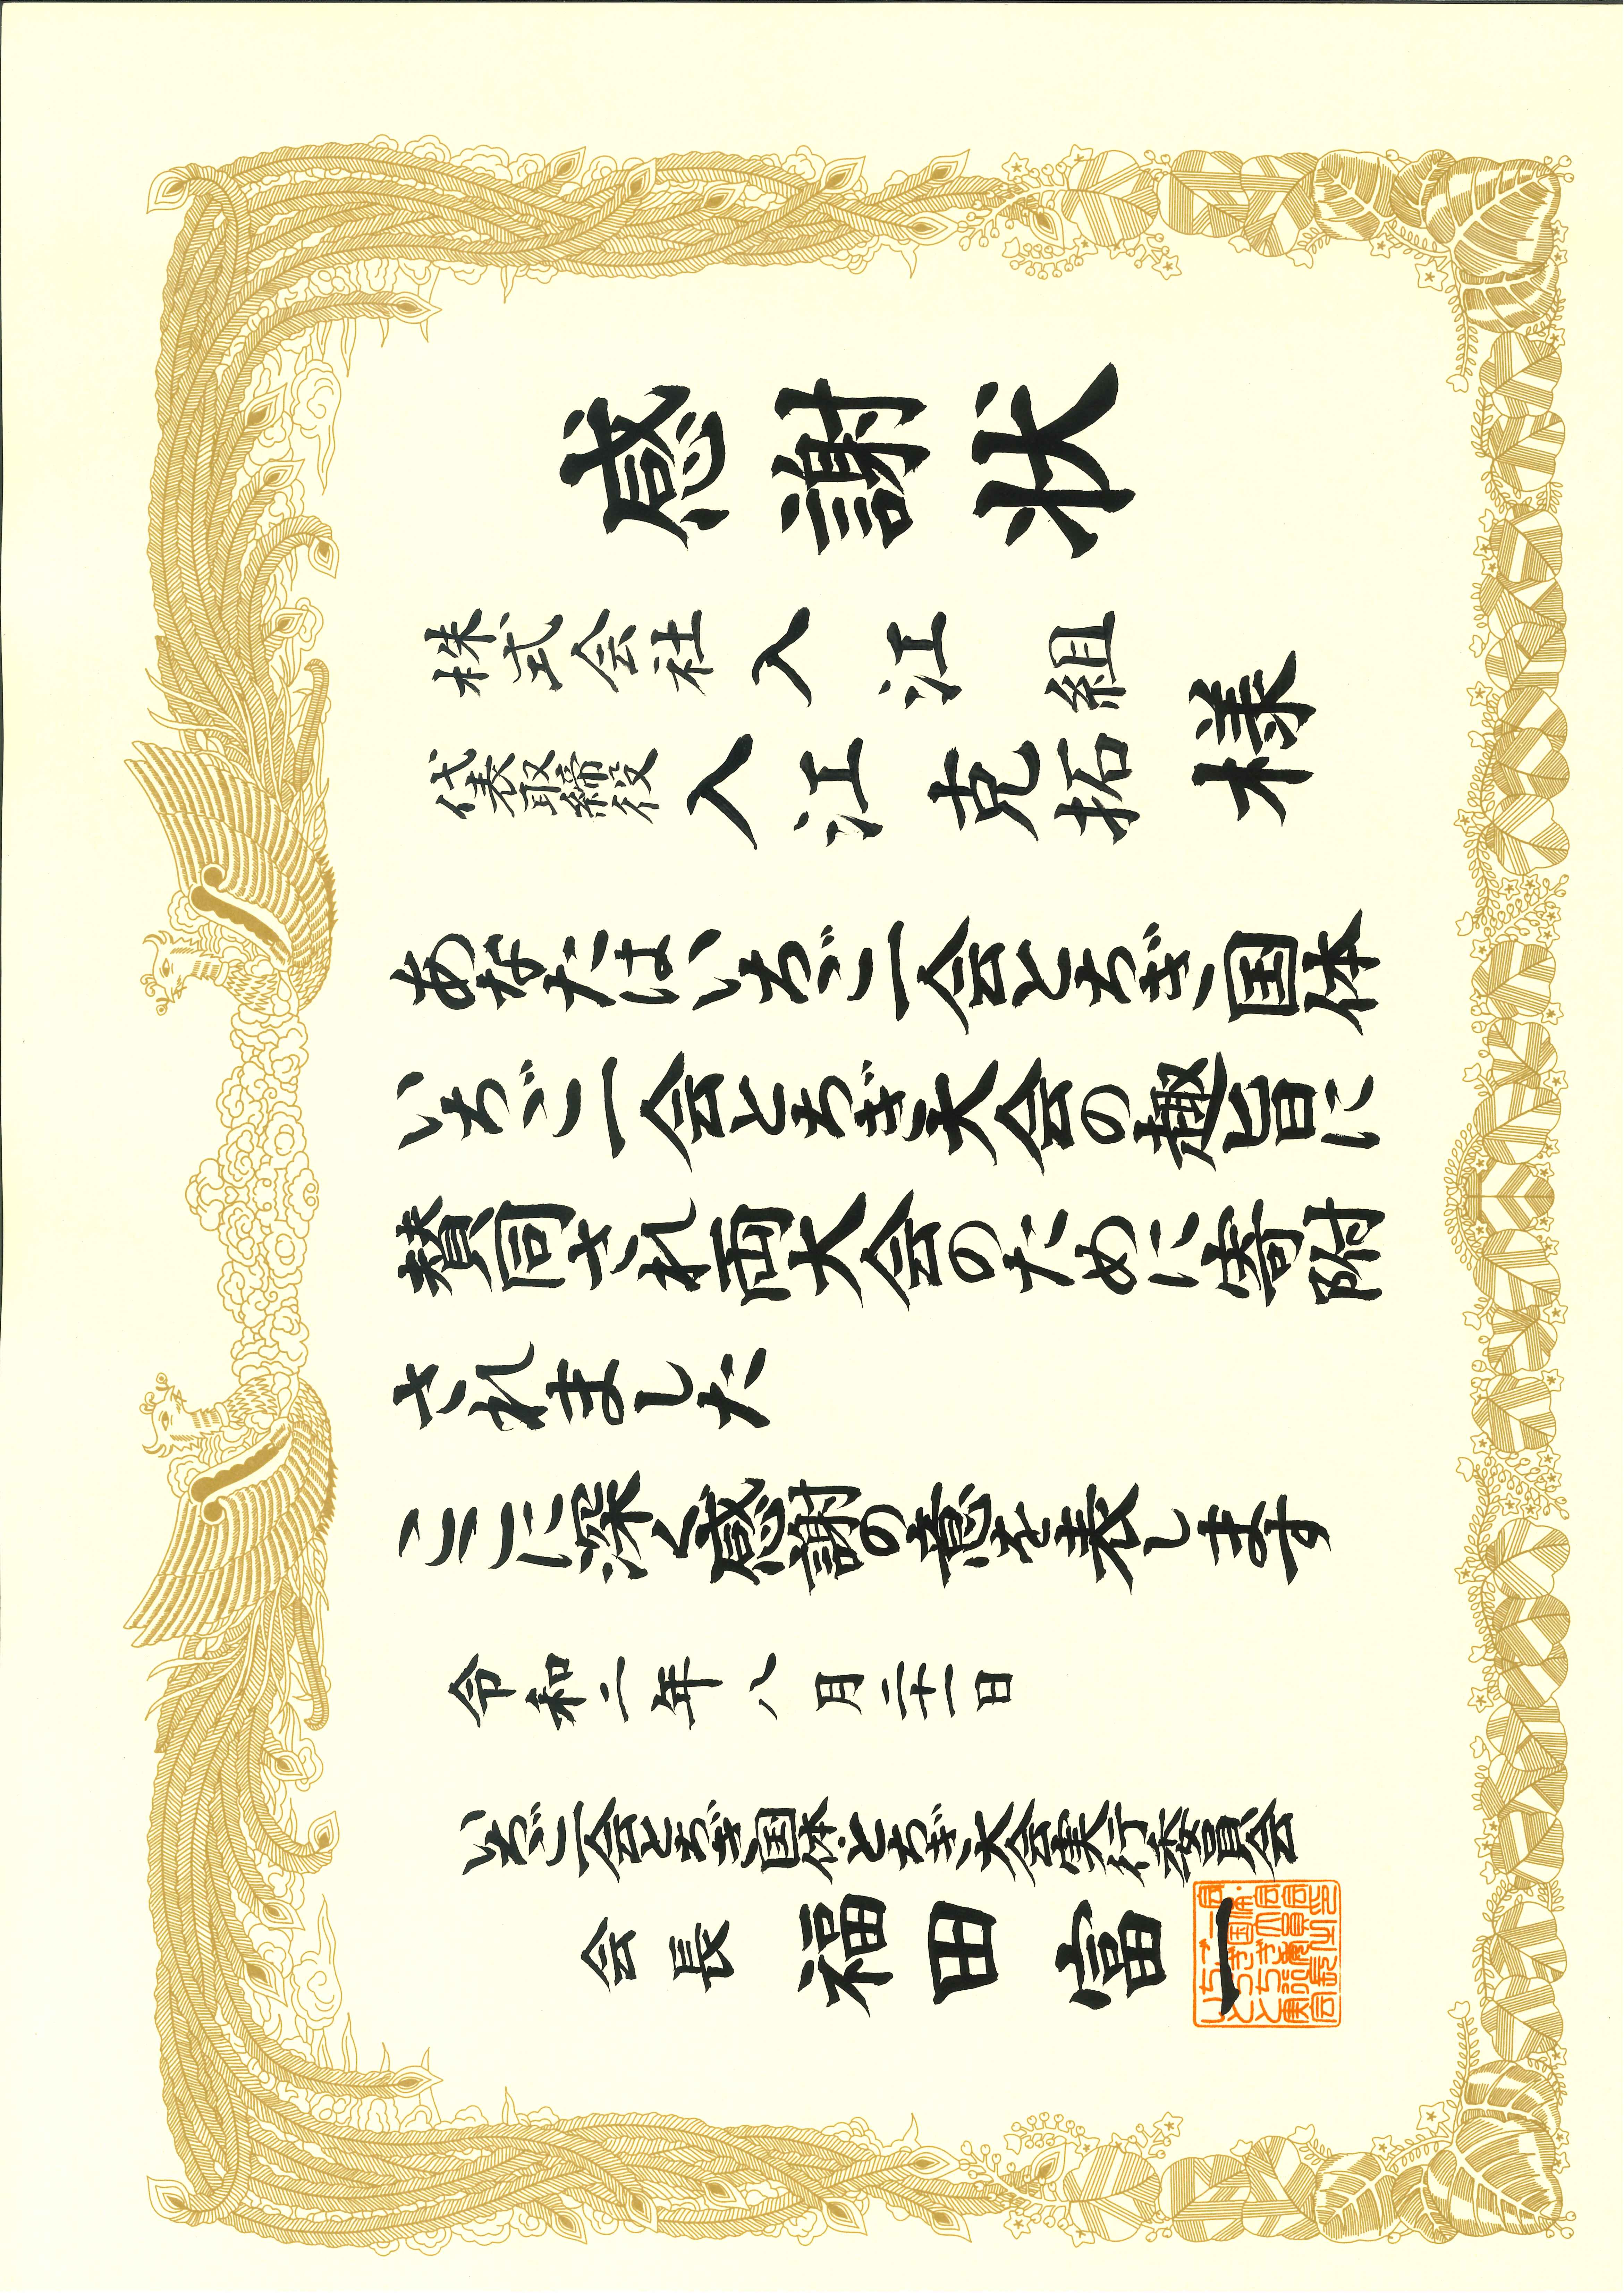 感謝状
株式会社入江組
代表取締役入江克拓様
あなたはいちご一会とちぎ国体
いちご一会とちぎ大会の趣旨に
賛同され両大会のために寄附
されました
ここに深く感謝の意を表します
令和二年八月二十一日
いちご一会とちぎ国体・とちぎ大会実行委員会
会長福田富一